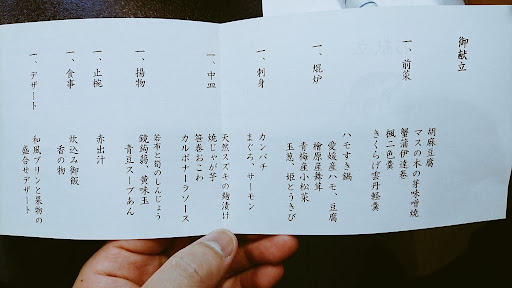 御献立
一、前菜
胡麻豆腐
マスの木の芽味噌焼
蟹蒲伊達巻
楓二色羹
きくらげ雲丹軽羹
一、焜炉
ハモすき鍋
愛媛産ハモ、豆腐
檜原産舞茸
青梅産小松菜
玉葱、姫とうきび
一、刺身
カンパチ
まぐろ、サーモン
一、中皿
天然スズキの麹漬け
焼じゃが芋
笹巻おこわ
カルボナーラソース
一、揚物
若布と筍のしんじょう
鏡蒟蒻、黄味玉
青豆スープあん
一、止椀
赤出汁
一、食事
炊込み御飯
香の物
一、デザート
和風プリンと果物の
盛合せデザート